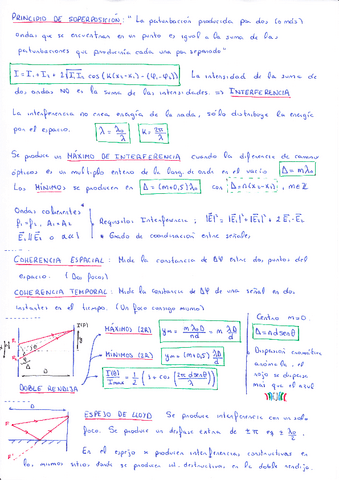 PRINCIPIO DE SUPERPOSICIÓN: "La perturbación producida por dos (o más)
ondas que se encuentran en un punto es igual a la suma de las
perturbaciones que produciría cada una por separado"
I = I₁ + I₂ + 2√I₁I₂ cos (K(x₂-x₁) - (φ₂-φ₁)) La intensidad de la suma de
dos ondas NO es la suma de las intensidades. INTERFERENCIA
La interferencia no crea energía de la nada, sólo distribuye la energía
por el espacio. λ = λ₀/n K = 2π/λ
Se produce un MÁXIMO DE INTERFERENCIA cuando la diferencia de caminos
ópticos es un múltiplo entero de la long. de onda en el vacío Δ = mλ₀
Los MÍNIMOS se producen en Δ = (m+0,5)λ₀ con Δ = n(x₂-x₁), m∈Z
Ondas coherentes*
f₁ = f₂, A₁ = A₂
Requisitos Interferencia: |E|² = |E₁|² + |E₂|² + 2 E₁·E₂
* Grado de coordinación entre señales
COHERENCIA ESPACIAL: Mide la constancia de ΔΨ entre dos puntos del
espacio. (Dos focos)
COHERENCIA TEMPORAL: Mide la constancia de ΔΨ de una señal en dos
instantes en el tiempo. (Un foco consigo mismo)
I(θ)
MÁXIMOS (2R) ym = mλ₀D/nd = m λD/d
MÍNIMOS (2R) ym = (m+0,5) λD/d
I(θ)/Imax = 1/2 (1 + cos (2πd senθ/λ))
DOBLE RENDIJA
Centro m=0
Δ = nd senθ
Dispersión cromática
anómala, el
rojo se dispersa
más que el azul
D
ESPEJO DE LLOYD Se produce interferencia con un solo
foco. Se produce un desfase extra de ±π eq ± λ₀/2.
En el espejo se producen interferencias constructivas en
los mismos sitios donde se producen destructivas en la doble rendija.